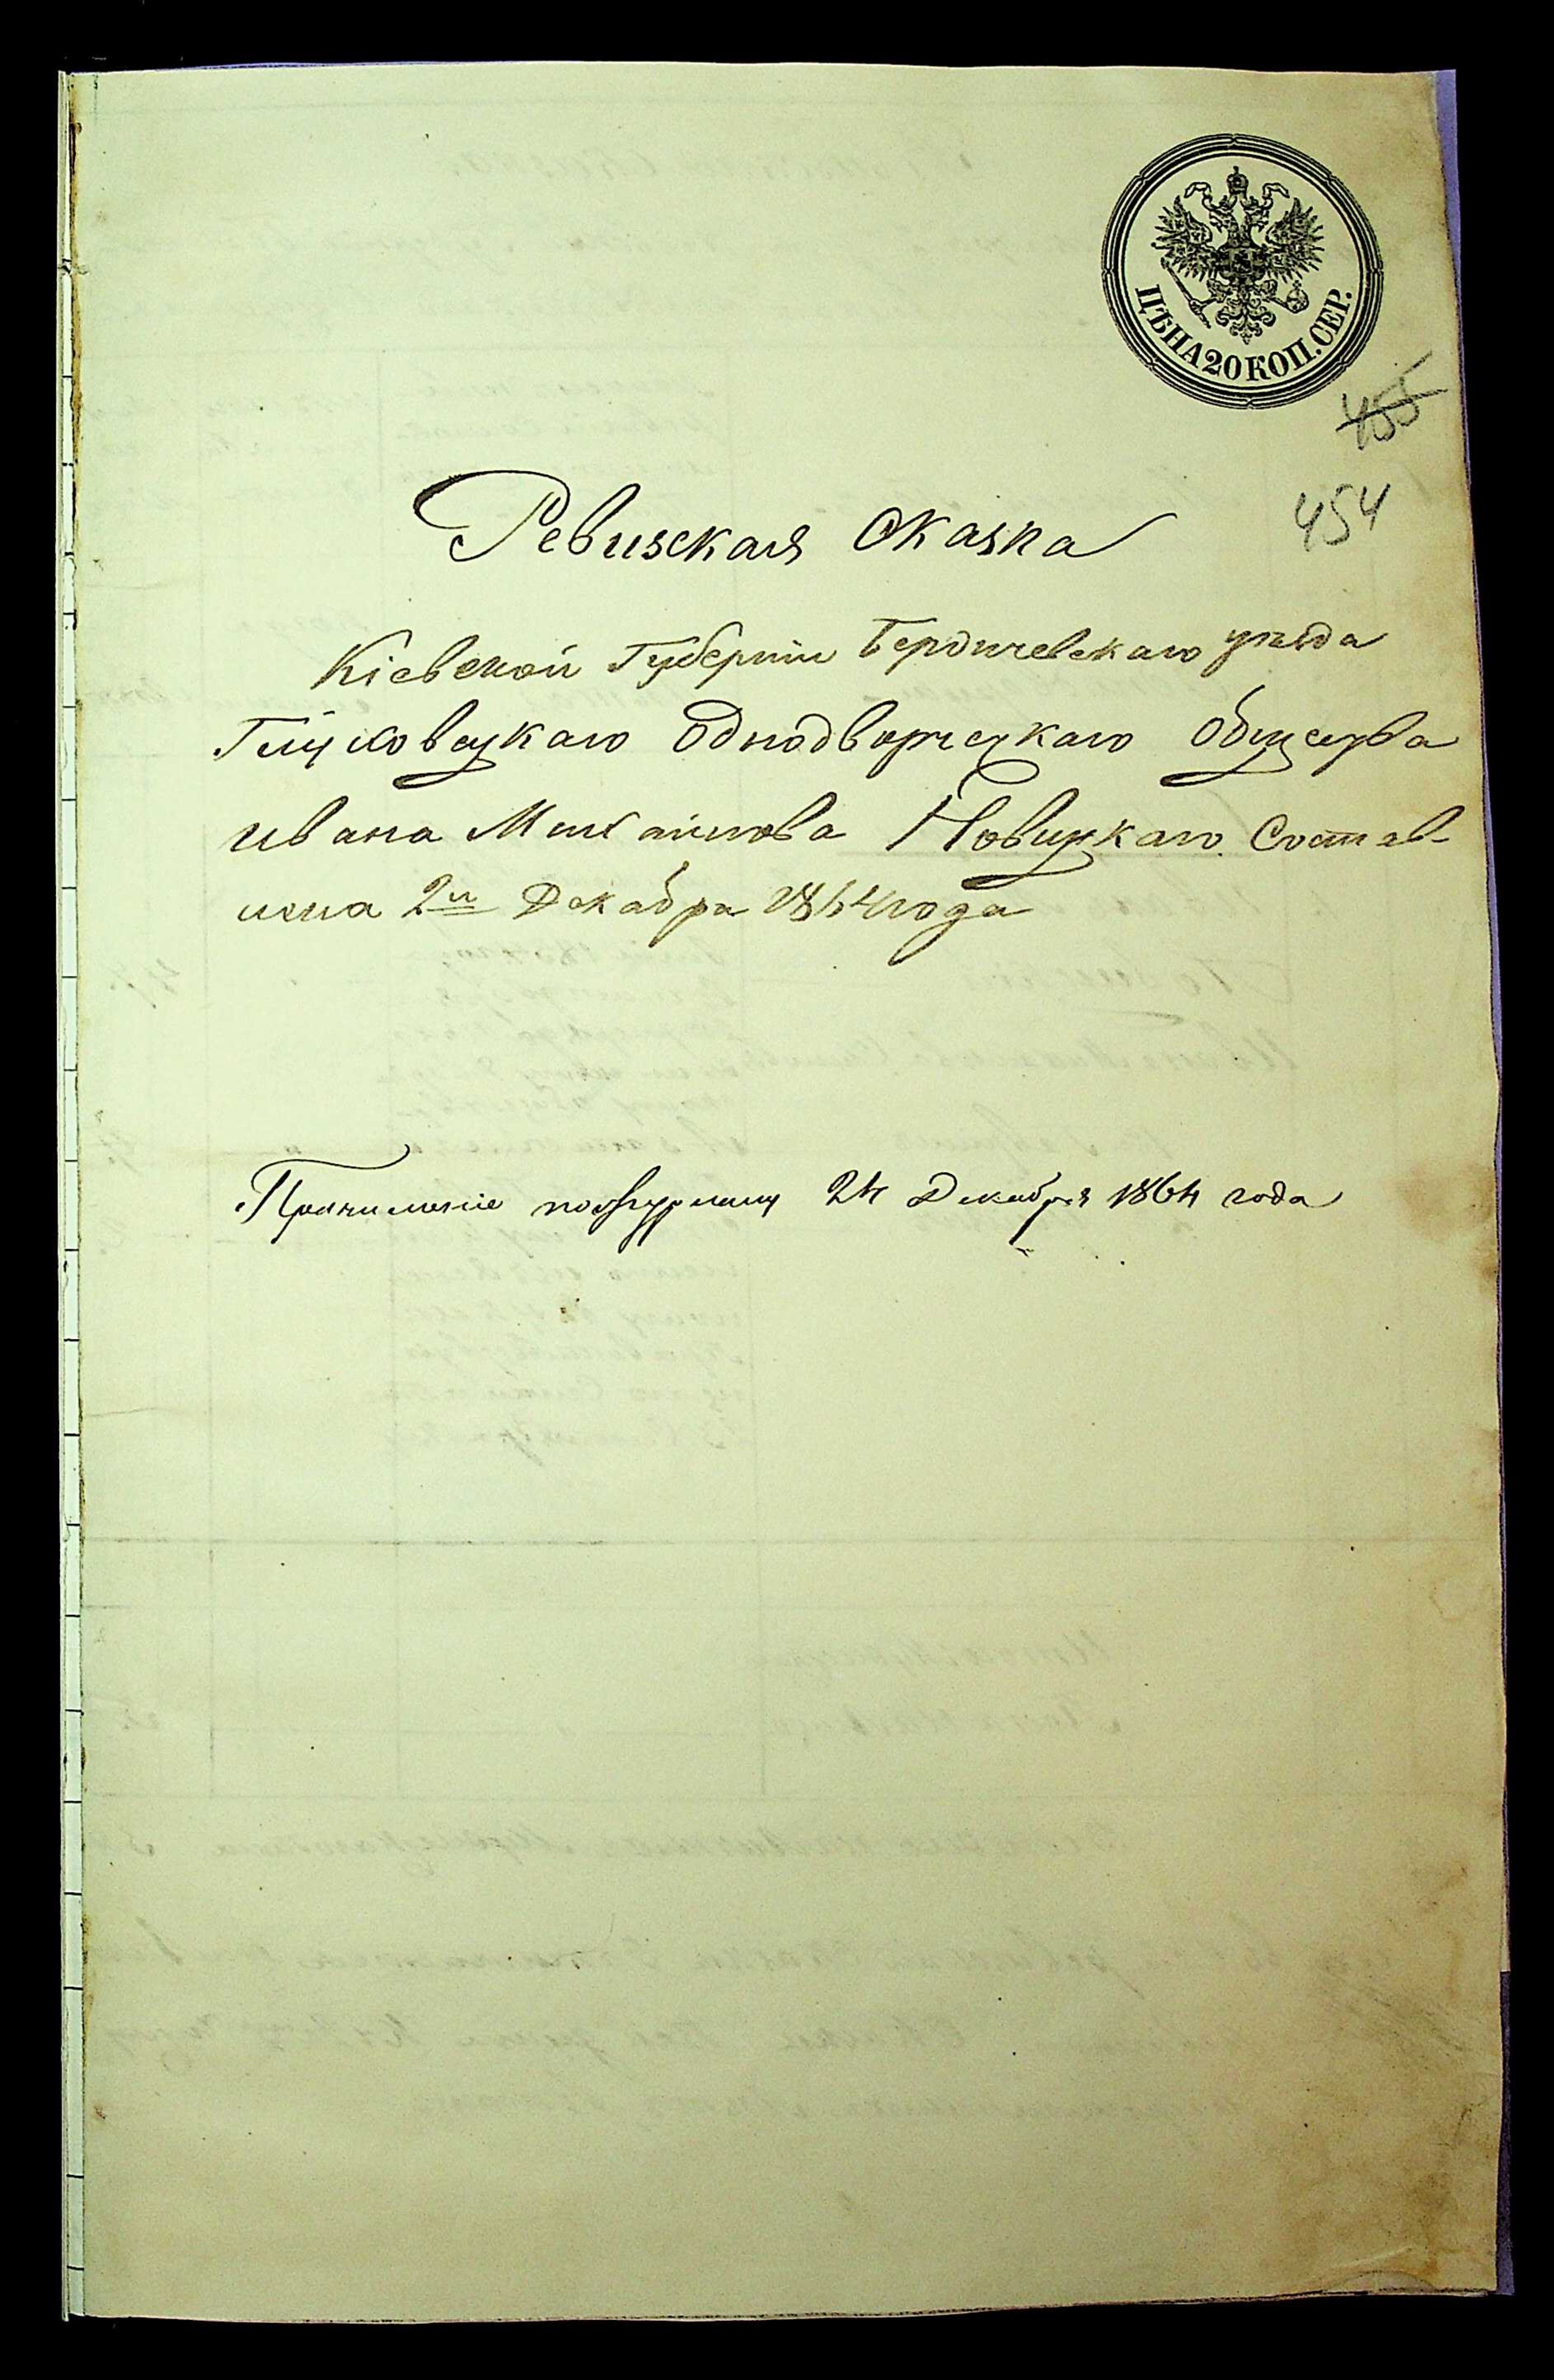 ЦѢНА 20 КОП. СЕР.
455
454
Ревизская Сказка
Кіевской Губерніи Бердичевскаго уѣзда
Глуховецкаго Однодворческаго Общества
Ивана Михайлова Новицкаго Состав-
лена 2го Декабря 1864 года
Причисленіе по 24 Декабря 1864 года